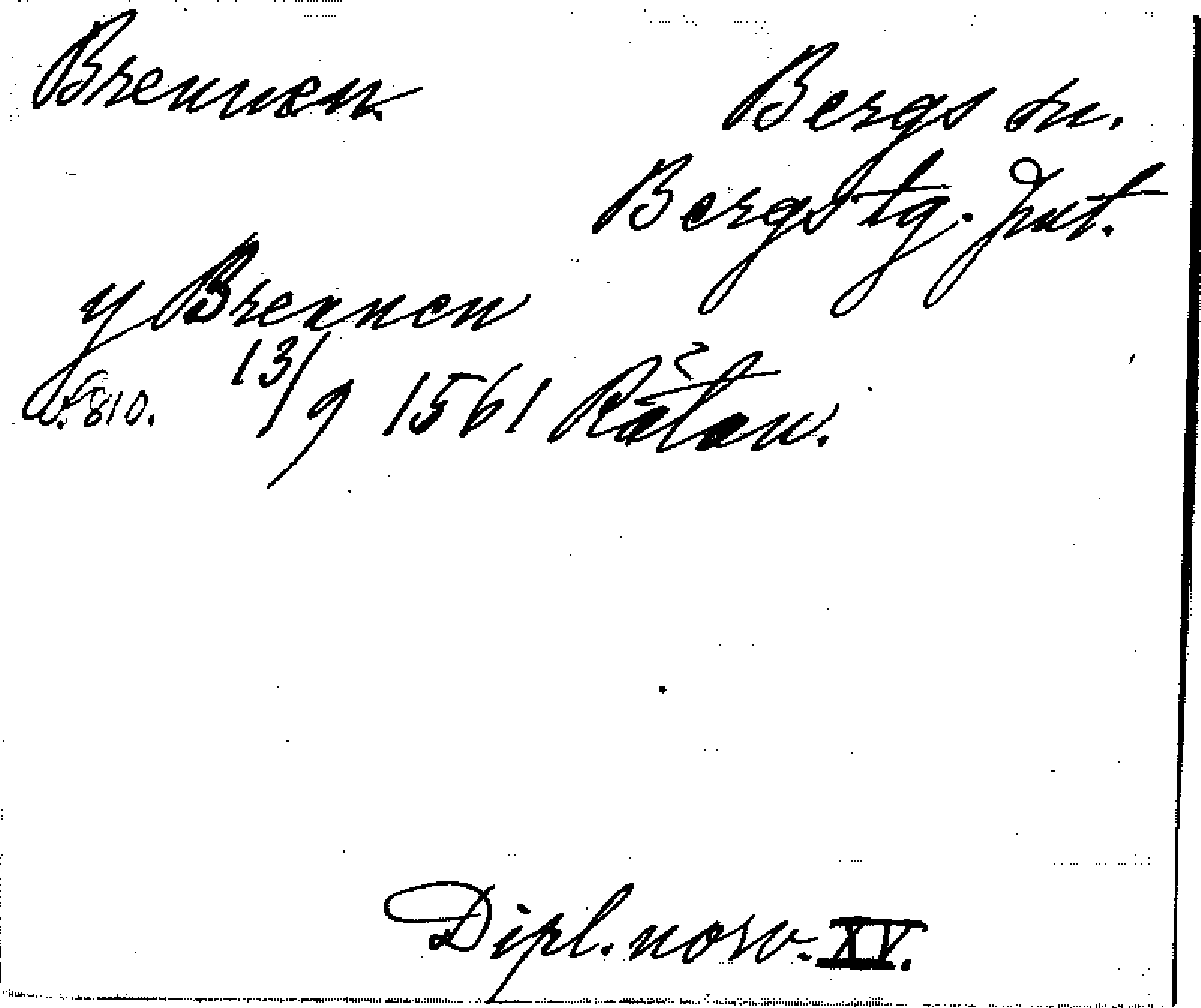 Brennen Bergs sn.
Bergs tg. Jmt.
y Brennen
s. 810. 13/9 1561 Råtan.
Dipl. norv. XV.